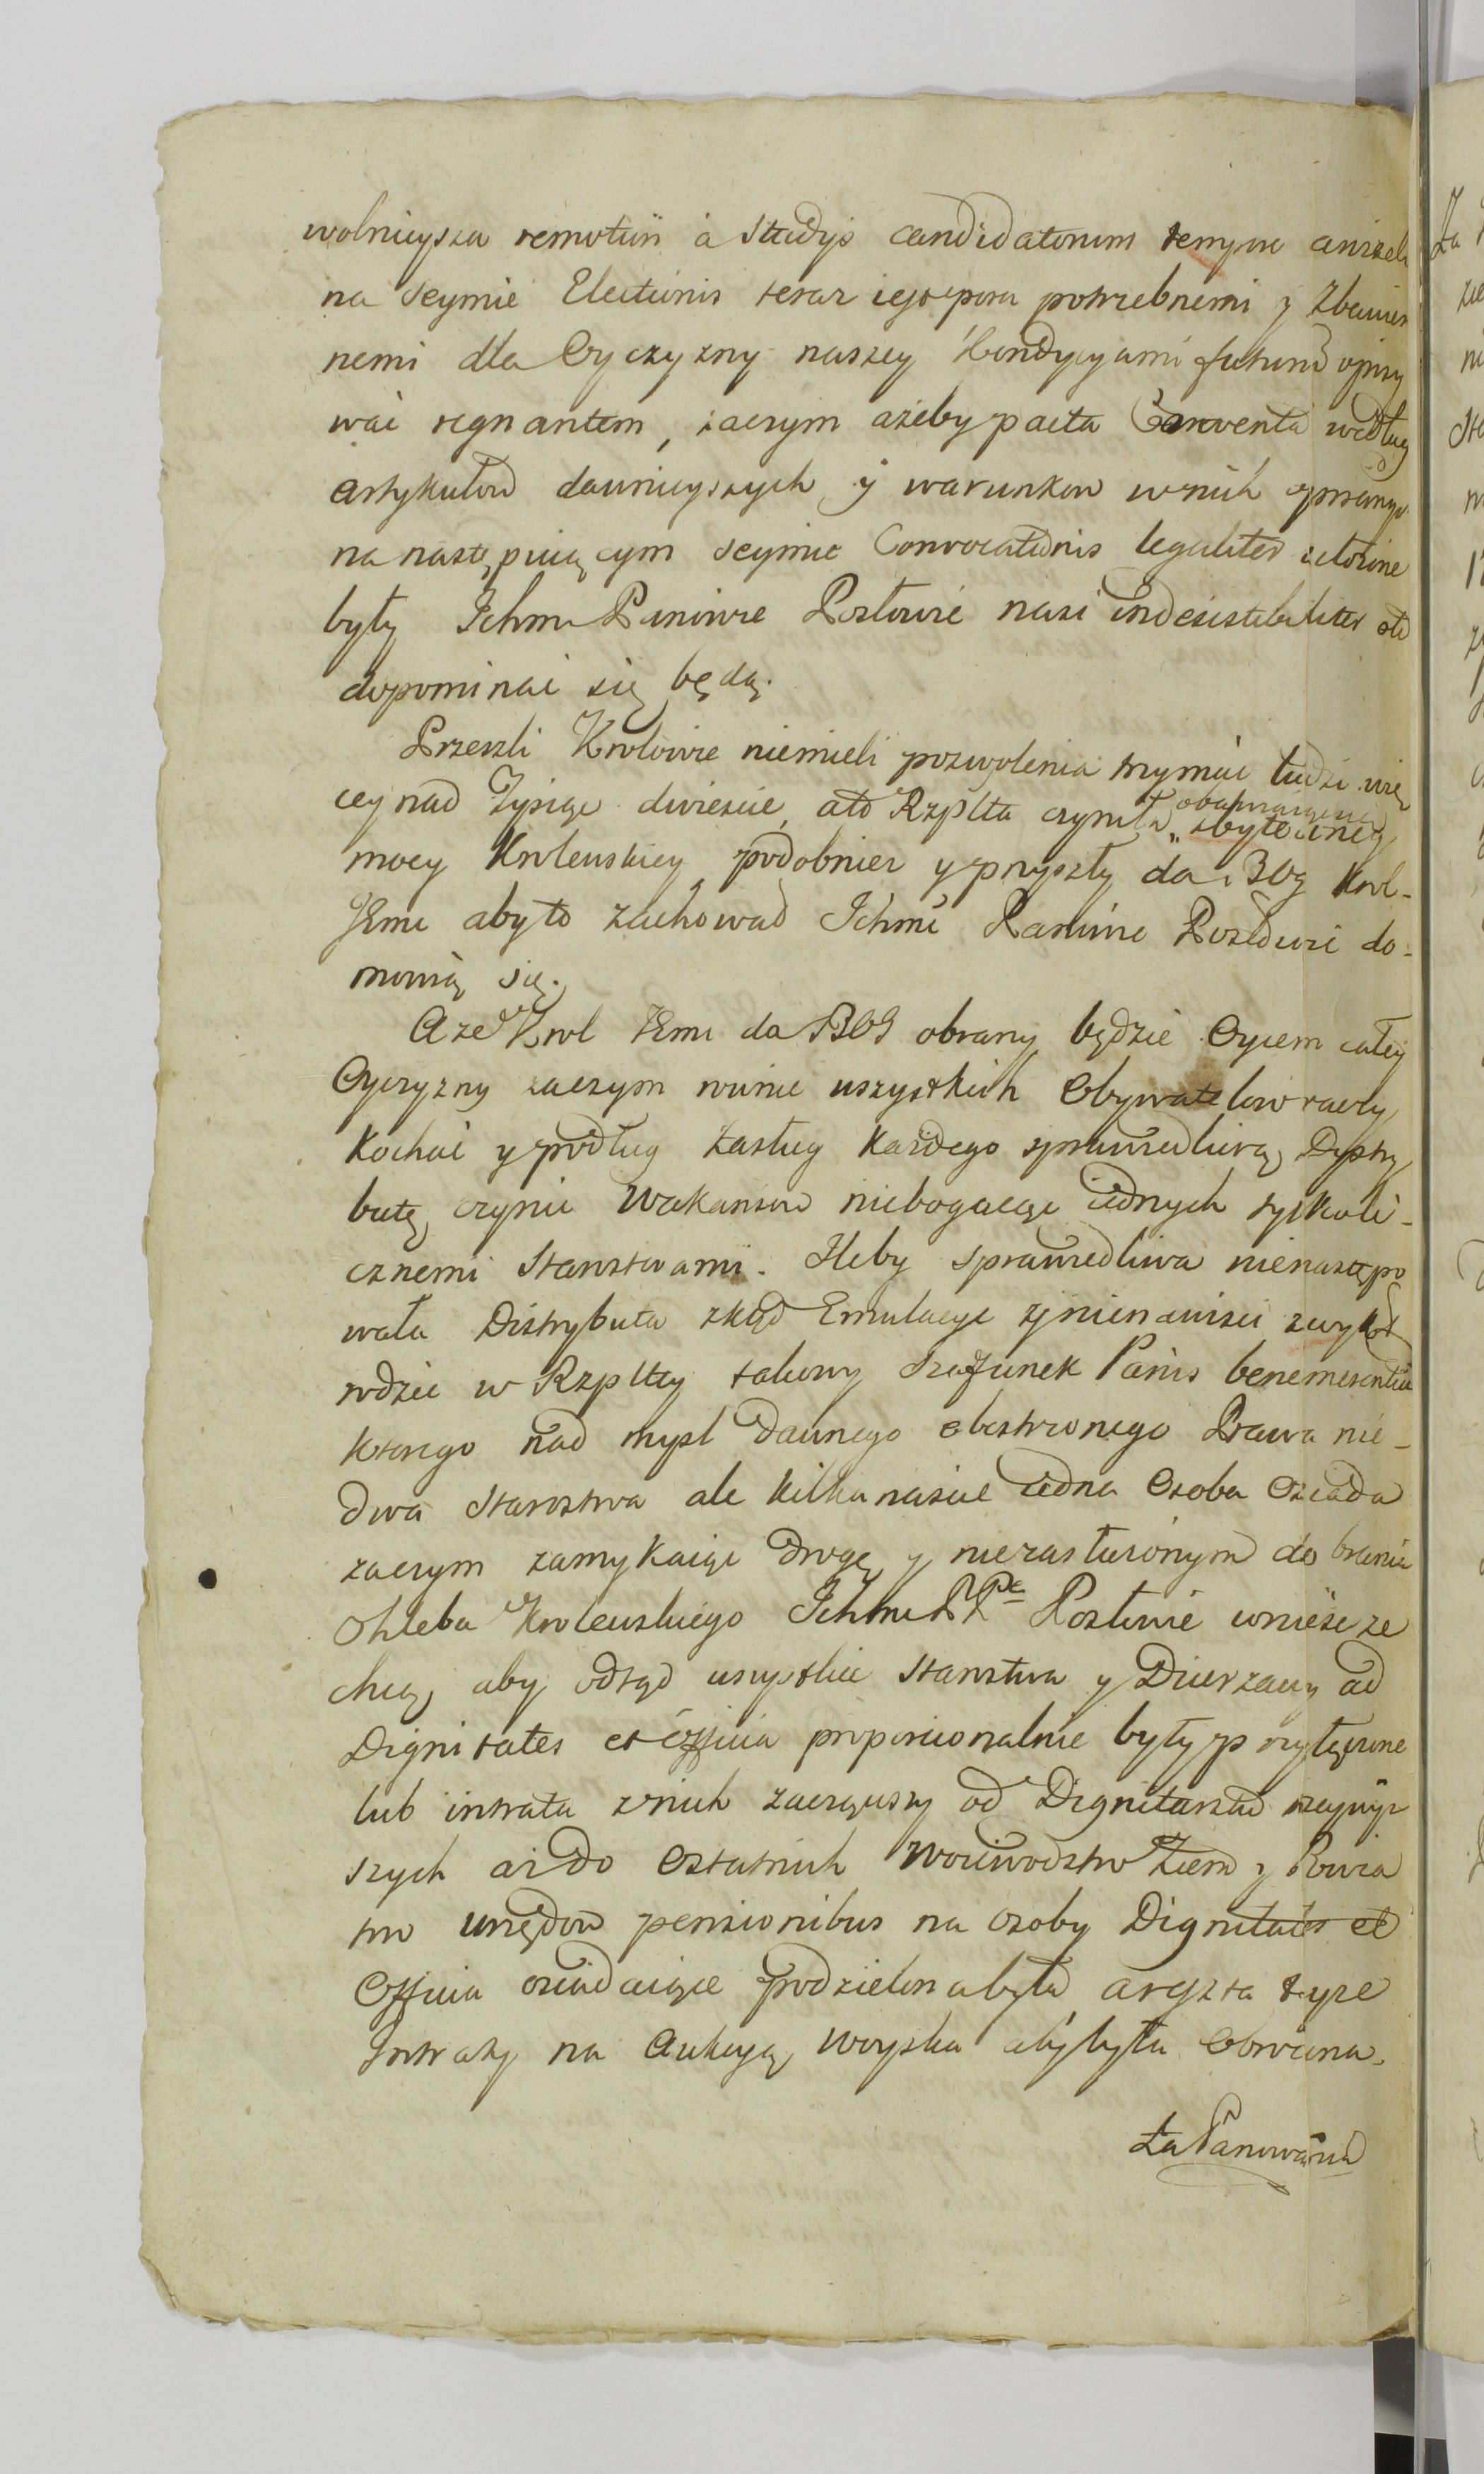 wolnieysza remotiri à Studys candidatorum tempora aniżeli
na Seymie Electionis teraz iest pora potrzebnemi y Zbawien
nemi dla Oyczyzny naszey Kondycyami futurū opisy
wać regnantem, zaczym ażeby pacta Conventa według
artykułow dawnieyszych y warunkow w nich opisanych
na następuiącym Seymie Convocationis legaliter ułożone
były Ichm Panowie Posłowie nasi indesistibiliter oto
dopominać się będą.
Przeszli Krolowie niemieli pozwolenia trzymać ludzi wię
cey nad Tysiąc dwieście, a to Rzplta czyniła obawiaiąc się
zbyteczney
mocy Krolewskiey podobnież y przyszły da Bog Krol
JEmć aby to zachował Ichmć Panowie Posłowie do-
mowią się.
A że Krol JEmć da BOG obrany będzie Oycem całey
Oyczyzny zaczym winie wszystkich Obywatelow raczy
Kochać y podług Zasług Każdego sprawiedliwą Dystry
butę czynić Wakansow niebogacąc iednych tylko li-
cznemi Starostwami. Ileby sprawiedliwa nienastępo
wała Distrybuta zkąd Emulacye y nienawiści zwykł
rodzić w Rzpltey takowy Szafunek Panis benemerentium
ktorego nad mysl dawnego obostrzonego Prawa nie-
dwa Starostwa ale kilkanaście iedna Osoba Osiada
zaczym zamykaiąc drogę y niezasłużonym do brania
Chleba Krolewskiego Ichmć PPe Posłowie wnieść ze
chcą, aby odtąd wszystkie Starostwa y Dzierzawy ad
Dignitates et Officia proporcionalnie były przyłączone
lub intrata z nich zacząwszy od Dignitarzow naywyż
szych aż do Ostatnich Woiewodztw Ziem y Powia
tow urzędow pensionibus na osoby Dignitates et
Officia osiadaiące podzielona była, a reszta teyże
Intraty na Aukcyą woyska aby była Obrocona.
Za Panowania